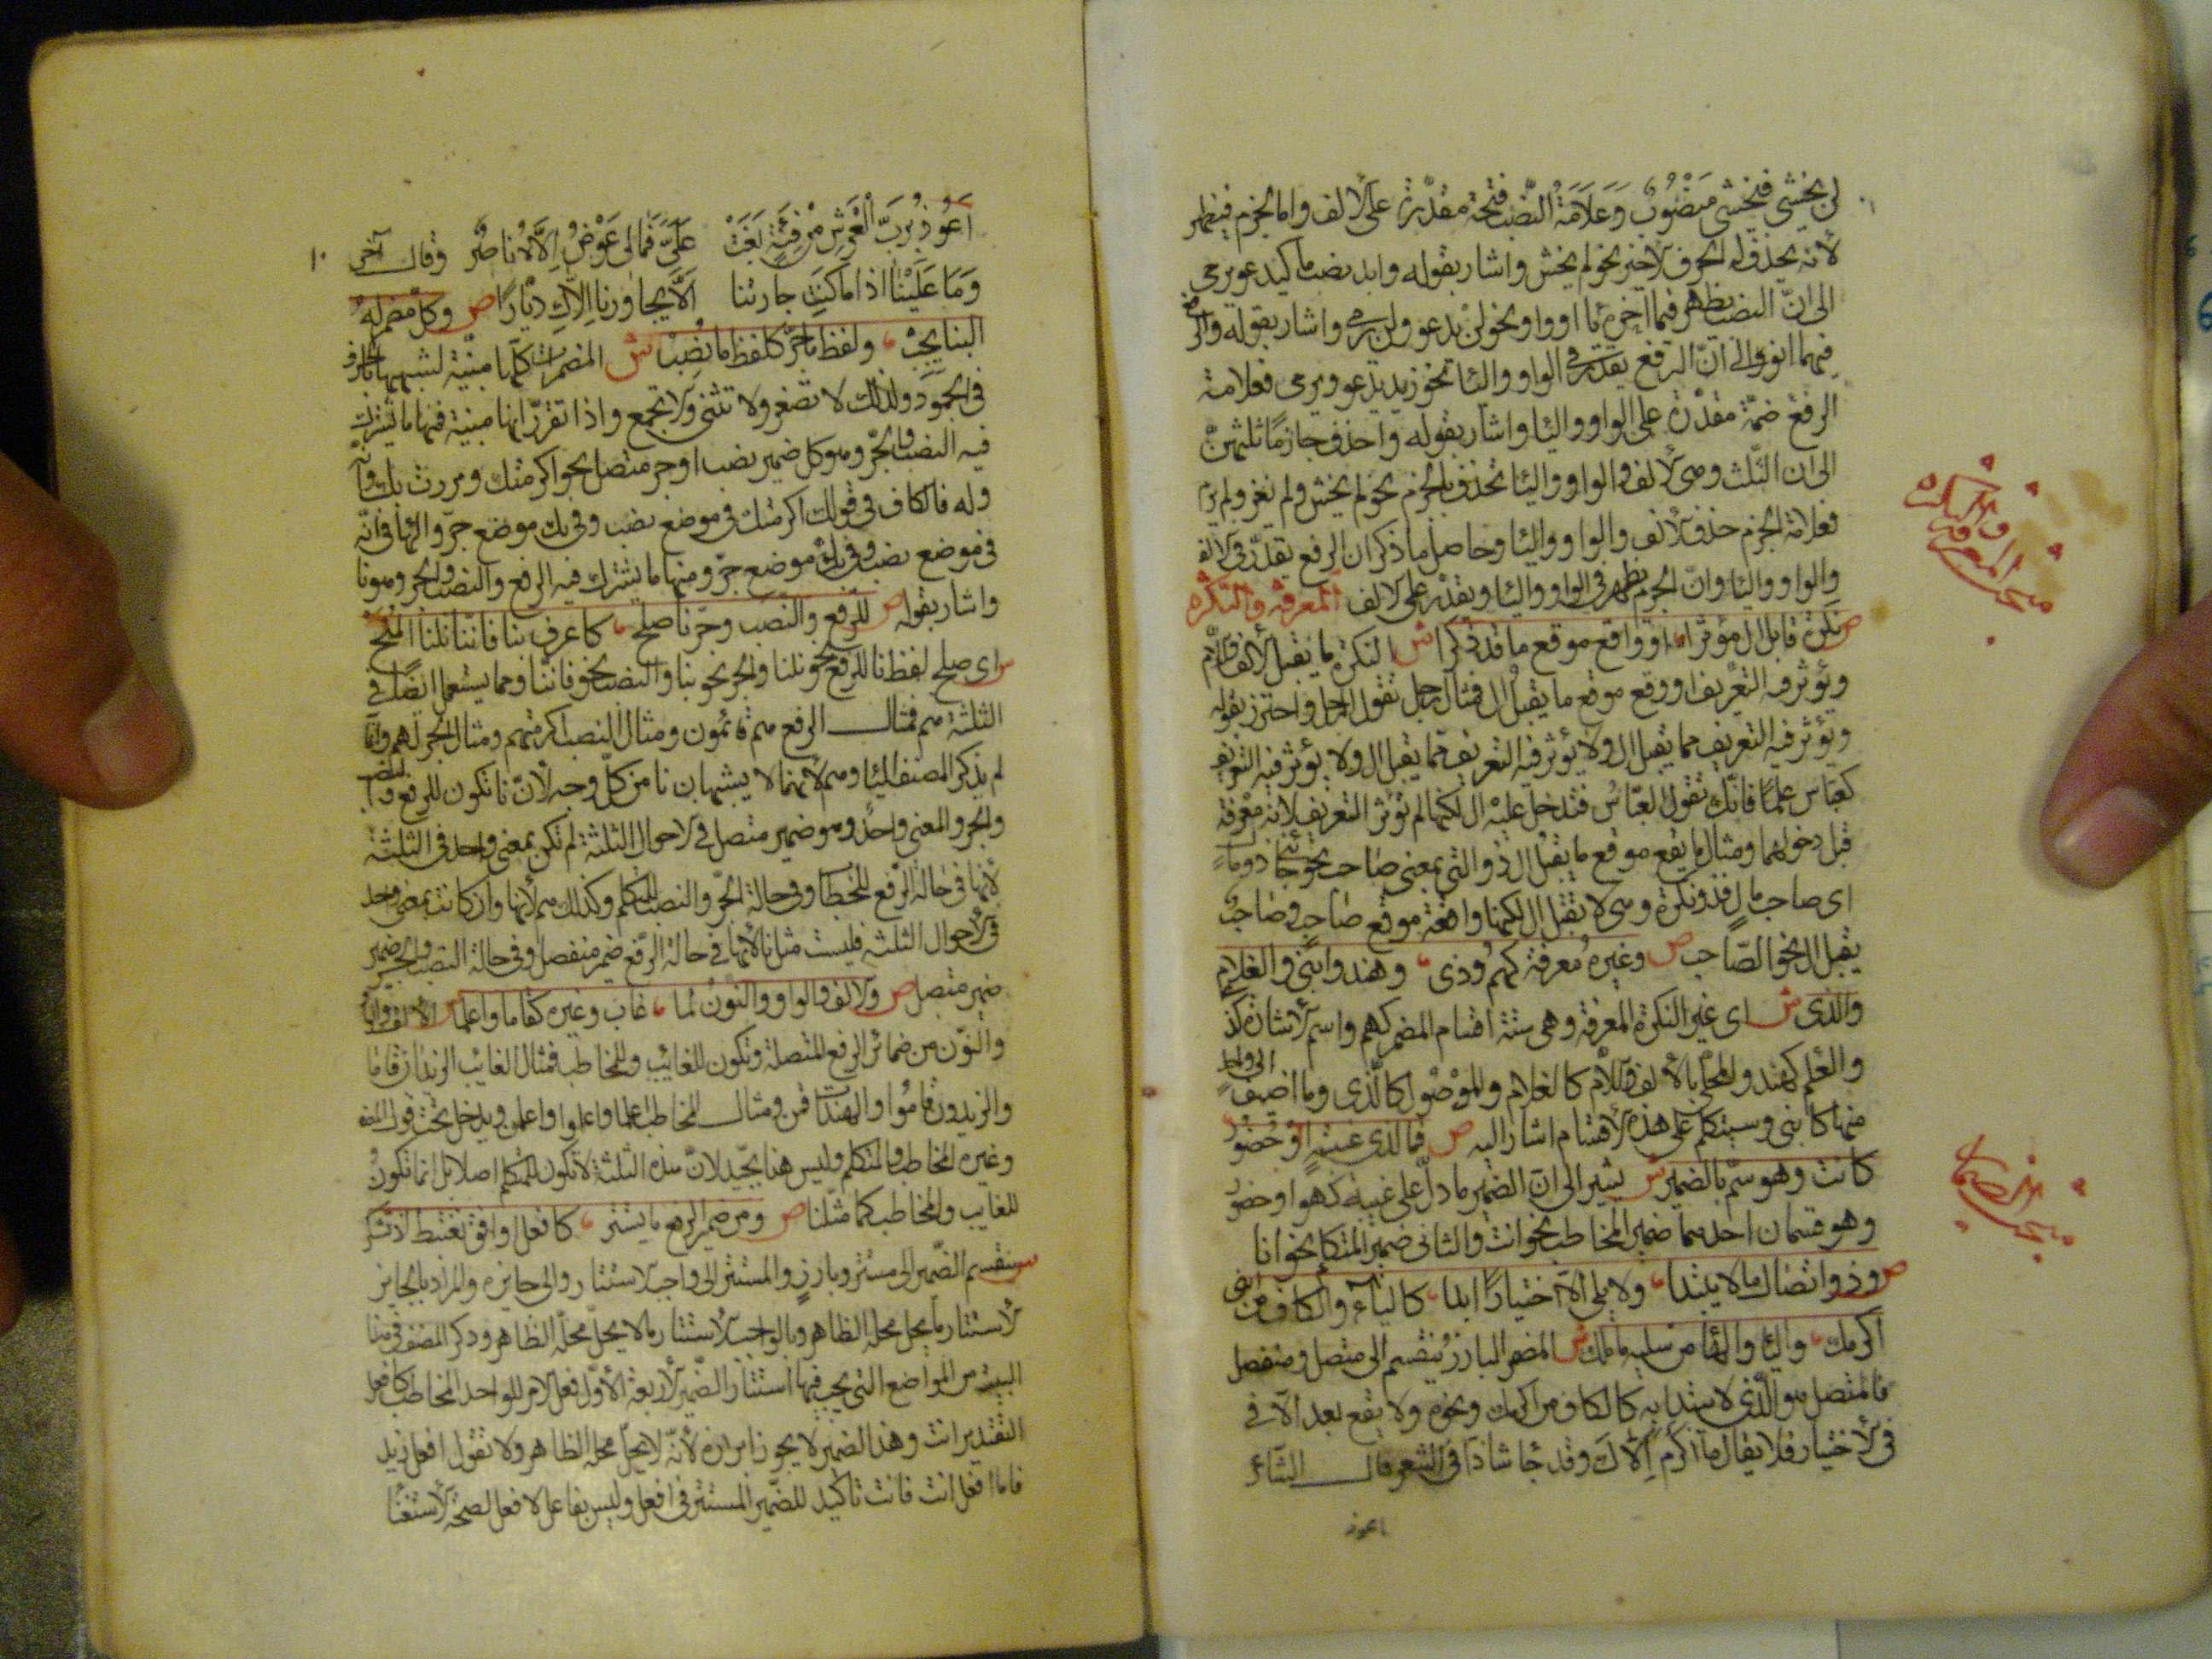 لن يخشى فيخشى منصوب وعلامة النصب فتحة مقدرة على الالف واما الجزم فيظهر
لانه يحذف له الحرف الاخير نحو لم يخش واشار بقوله وابد نصب ما كيدعو يرمى
الى ان النصب يظهر فيما اخره يا او واو نحو لن يدعو ولن يرمى واشار بقوله والرفع
فيهما انو الى ان الرفع يقدر فى الواو واليا نحو زيد يدعو ويرمى فعلامة
الرفع ضمة مقدرة على الواو واليا واشار بقوله واحذف جازما ثلثهن
الى ان الثلث وهى الالف والواو واليا تحذف بالجزم نحو لم يخش ولم يغز ولم يرم
فعلامة الجزم حذف الالف والواو واليا وحاصل ما ذكر ان الرفع يقدر فى الالف
والواو واليا وان الجزم يظهر فى الواو واليا ويقدر على الالف المعرفة والنكرة
ص نكرة قابل ال مؤثرا او واقع موقع ما قد ذكرا ش النكرة ما يقبل الالف واللام
ويؤثر فيه التعريف او وقع موقع ما يقبل ال فمثال رجل تقول الرجل واحترز بقوله
ويؤثر فيه التعريف مما يقبل ال ولا يؤثر فيه التعريف مما يقبل ال ولا يؤثر فيه التعريف
كعباس علما فانك تقول العباس فتدخل عليه ال لكنها لم تؤثر التعريف لانه معرفة
قبل دخولهما ومثال ما يقع موقع ما يقبل ال ذو التى بمعنى صاحب نحو جانى ذو مال
اى صاحب مال فذو نكرة وهى لا تقبل ال لكنها واقعة موقع صاحب وصاحب
يقبل ال نحو الصاحب ص وغيره معرفة كهم وذى وهند وابنى والغلام
والذى ش اى غير النكرة المعرفة وهى ستة اقسام المضمر كهم واسم الاشارة كذى
والعلم كهند والمحلى بالالف واللام كالغلام والموصول كالذى وما اضيف الى واحد
منها كابنى وسيتكلم على هذه الاقسام اشار اليه ص فما لذى غيبة او حضور
كانت وهو سم بالضمير ش يشير الى ان الضمير ما دل على غيبة كهو او حضور
وهو قسمان احدهما ضمير المخاطب نحو انت والثانى ضمير المتكلم نحو انا
ص وذو اتصال ما لا يبتدا ولا يلى الا اختيارا ابدا كالياء والكاف من ابنى
اكرمك واليا والها من سليه ما ملك ش المضمر البارز ينقسم الى متصل ومنفصل
فالمتصل هو الذى لا يبتدا به كالكاف من اكرمك ونحوه ولا يقع بعد الا فى
فى الاختيار فلا يقال ما اكرم الاك وقد جا شاذا فى الشعر قال الشاعر
اعوذ
مبحث المعرفة والنكرة
مبحث الضماير
اعوذ برب العرش من فئة بغت علىّ فما لى عوض الاه ناصر وقال آخر
وما علينا اذا ما كنت جارتنا الا يجاورنا الاك ديارا ص وكل مضمر له
البنا يجب ولفظ ما جر كلفظ ما نصب ش المضمرات كلها مبنية لشبهها بالحروف
فى الجمود ولذلك لا تصغر ولا تثنى ولا تجمع واذا تقرر انها مبنية فمنها ما يشترك
فيه النصب والجر وهو كل ضمير نصب او جر متصل نحو اكرمتك ومررت بك وانه
وله فالكاف فى قولك اكرمتك فى موضع نصب وفى بك موضع جر والها فى انه
فى موضع نصب وفى بك موضع جر ومنها ما يشترك فيه الرفع والنصب والجر وهو نا
واشار بقوله ص للرفع والنصب وجر نا صلح كاعرف بنا فاننا نلنا المنح
ش اى صلح لفظ نا للرفع نحو نلنا والجر نحو بنا والنصب نحو فاننا ومما يستعمل ايضا فى
الثلثة هم فمثال الرفع هم قائمون ومثال النصب اكرمتهم ومثال الجر لهم وانما
لم يذكر المصنف اليا وهم لانهما لا يشبهان نا من كل وجه لان نا تكون للرفع والنصب
والجر والمعنى واحد وهو ضمير متصل فى الاحوال الثلثة لم تكن بمعنى واحد فى الثلثة
لانها فى حالة الرفع للخطاب وفى حالة الجر والنصب للمتكلم وكذلك هم لانها وان كانت بمعنى واحد
فى الاحوال الثلثه فليست مثل نا لانها فى حالة الرفع ضمير منفصل وفى حالة النصب والجر ضمير
ضمير متصل ص والالف والواو والنون لما غاب وغيره كقاما واعلما ش الالف والواو
والنون من ضمائر الرفع المتصلة وتكون للغائب وللمخاطب فمثال الغائب الزيدان قاما
والزيدون قاموا والهندات قمن ومثال المخاطب اعلما واعلموا واعلمن ويدخل تحت قول المصنف
وغيره المخاطب والمتكلم وليس هنا بجيد لان هذه الثلثة لا تكون للمتكلم اصلا بل انما تكون
للغايب والمخاطب كما مثلنا ص ومن ضمير الرفع ما يستتر كافعل اوافق نغتبط اذ تشكر
ش ينقسم الضمير الى مستتر وبارز والمستتر الى واجب الاستتار والى جايزه والمراد بالجايز
الاستتار ما يحل محله الظاهر وبالواجب الاستتار ما لا يحل محله الظاهر وذكر المصنف فى هذا
البيت من المواضع التى يجب فيها استتار الضمير الاربعة الاول فعل الامر للواحد المخاطب كافعل
التقدير انت وهذا الضمير لا يجوز ابرازه لانه لا يحل محله الظاهر ولا تقول افعل زيد
فاما افعل انت فانت تاكيد للضمير المستتر فى افعل وليس بفاعل لافعل لصحة الاستغنا
١٠